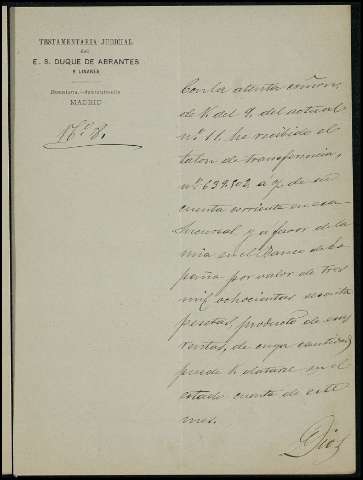 TESTAMENTARIA JUDICIAL
DEL
E. S. DUQUE DE ABRANTES
Y LINARES
MADRID
Nº 8.
Con la atenta comon.
de V. del 9. del actual
nº 11. he recibido el
talon de transferencia,
nº 639.802, a/ de su
cuenta corriente en esa
Sucursal y a favor de la
mia en el Banco de Es
paña por valor de tres
mil ochocientas
pesetas, producto de sus
rentas, de cuya cantidad
puede V. datarse en el
estado cuenta de este
mes.
Dios